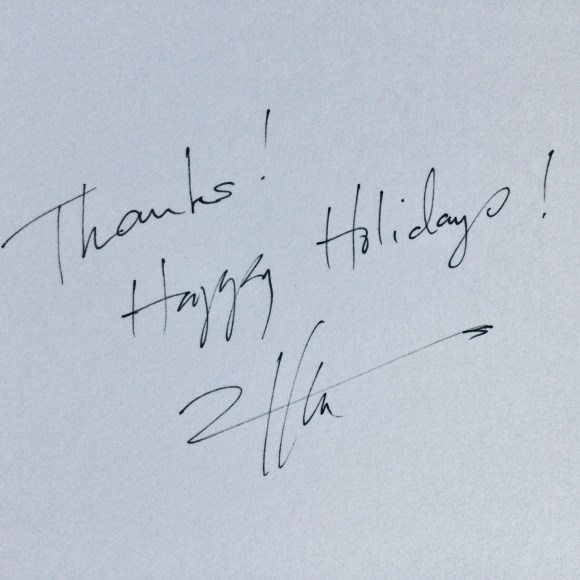 Thanks!
Happy Holidays!